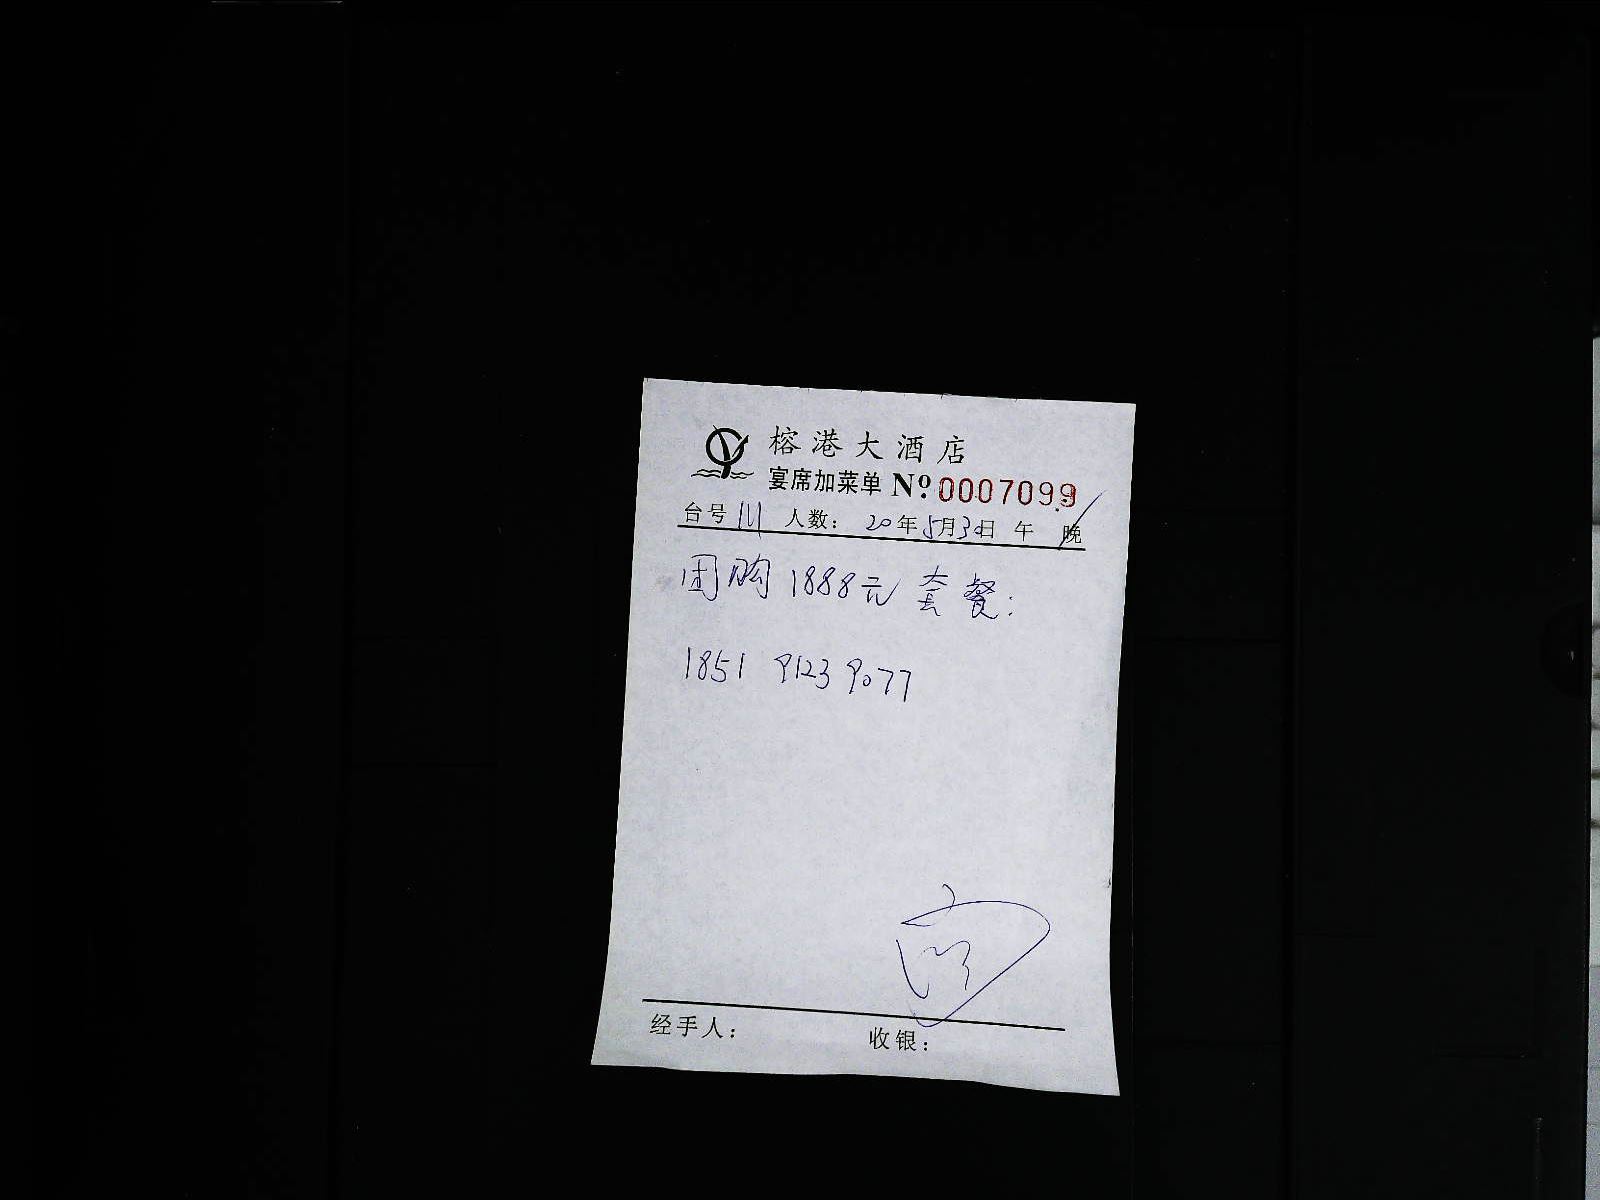 榕港大酒店
宴席加菜单 Nº 0007099
台号 111 人数: 20年5月30日 午 晚
团购1888元套餐:
1851 9123 9077
经手人: 收银: